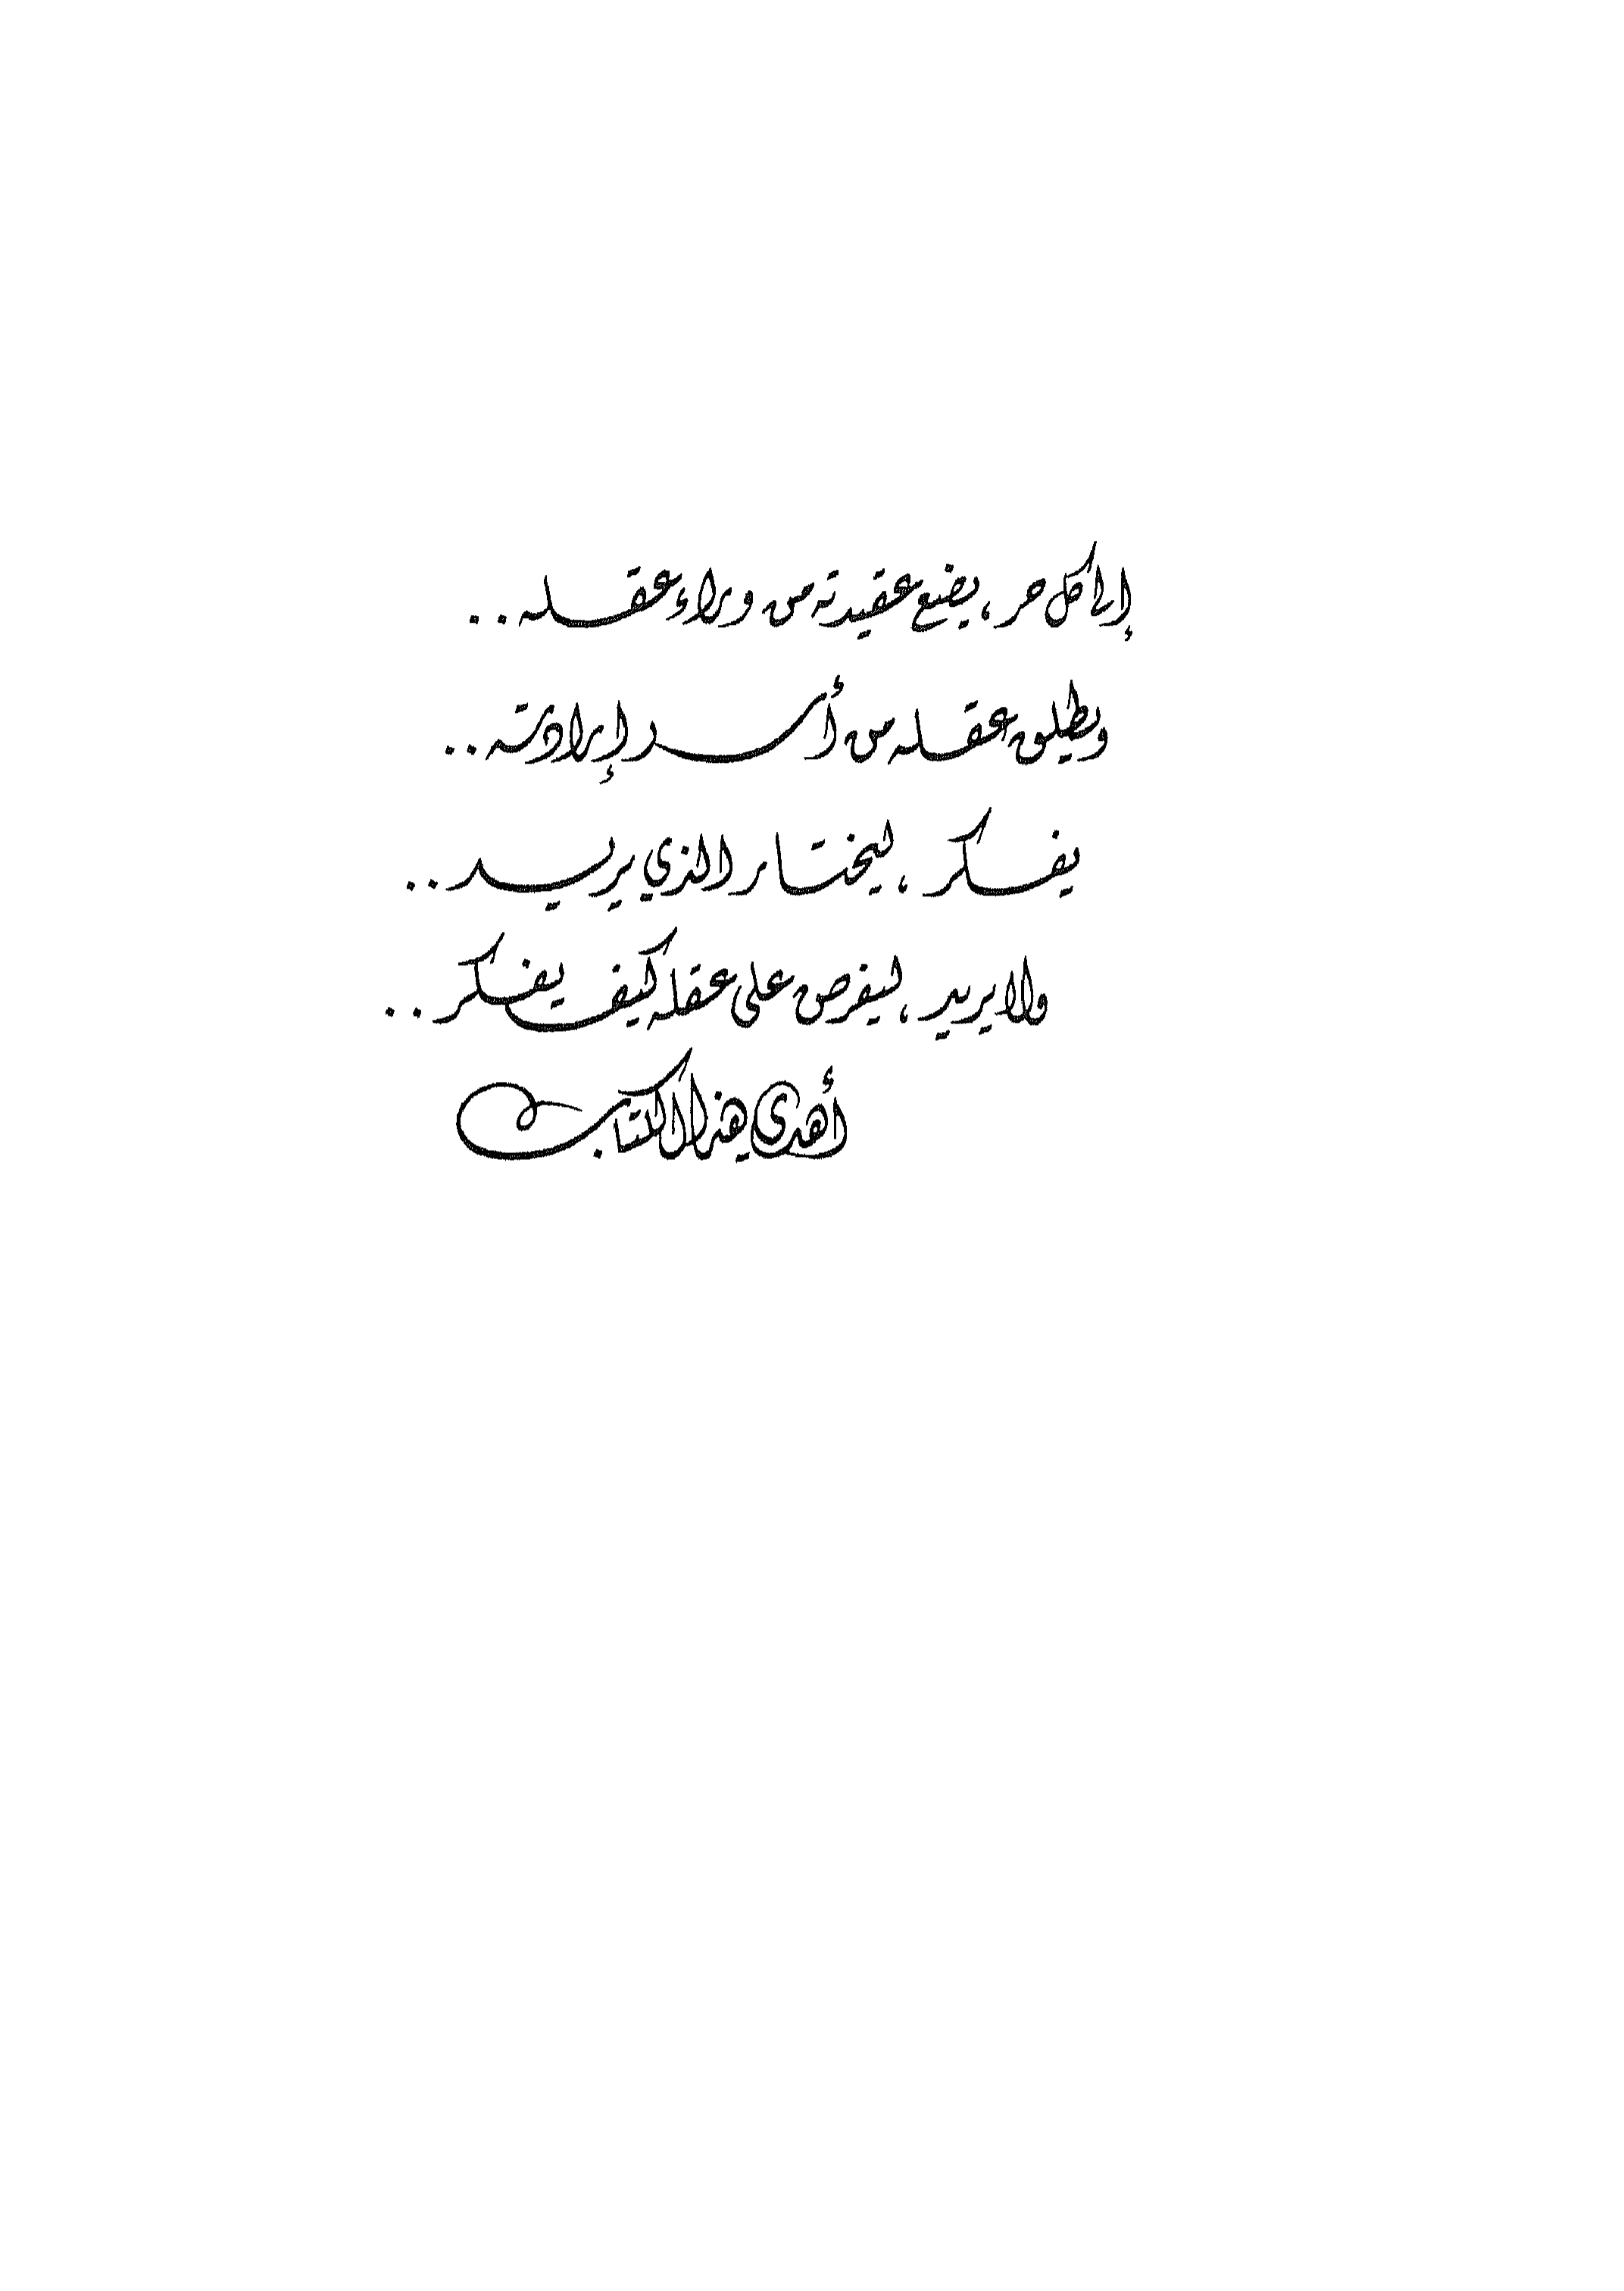 إلى كل حر، يضع عقيدته من وراء عقله..
ويطلق عقله من أسر إرادته..
يفكر، ليختار الذي يريد..
ولا يريد، ليفرض على عقله كيف يفكر..
أهدي هذا الكتاب